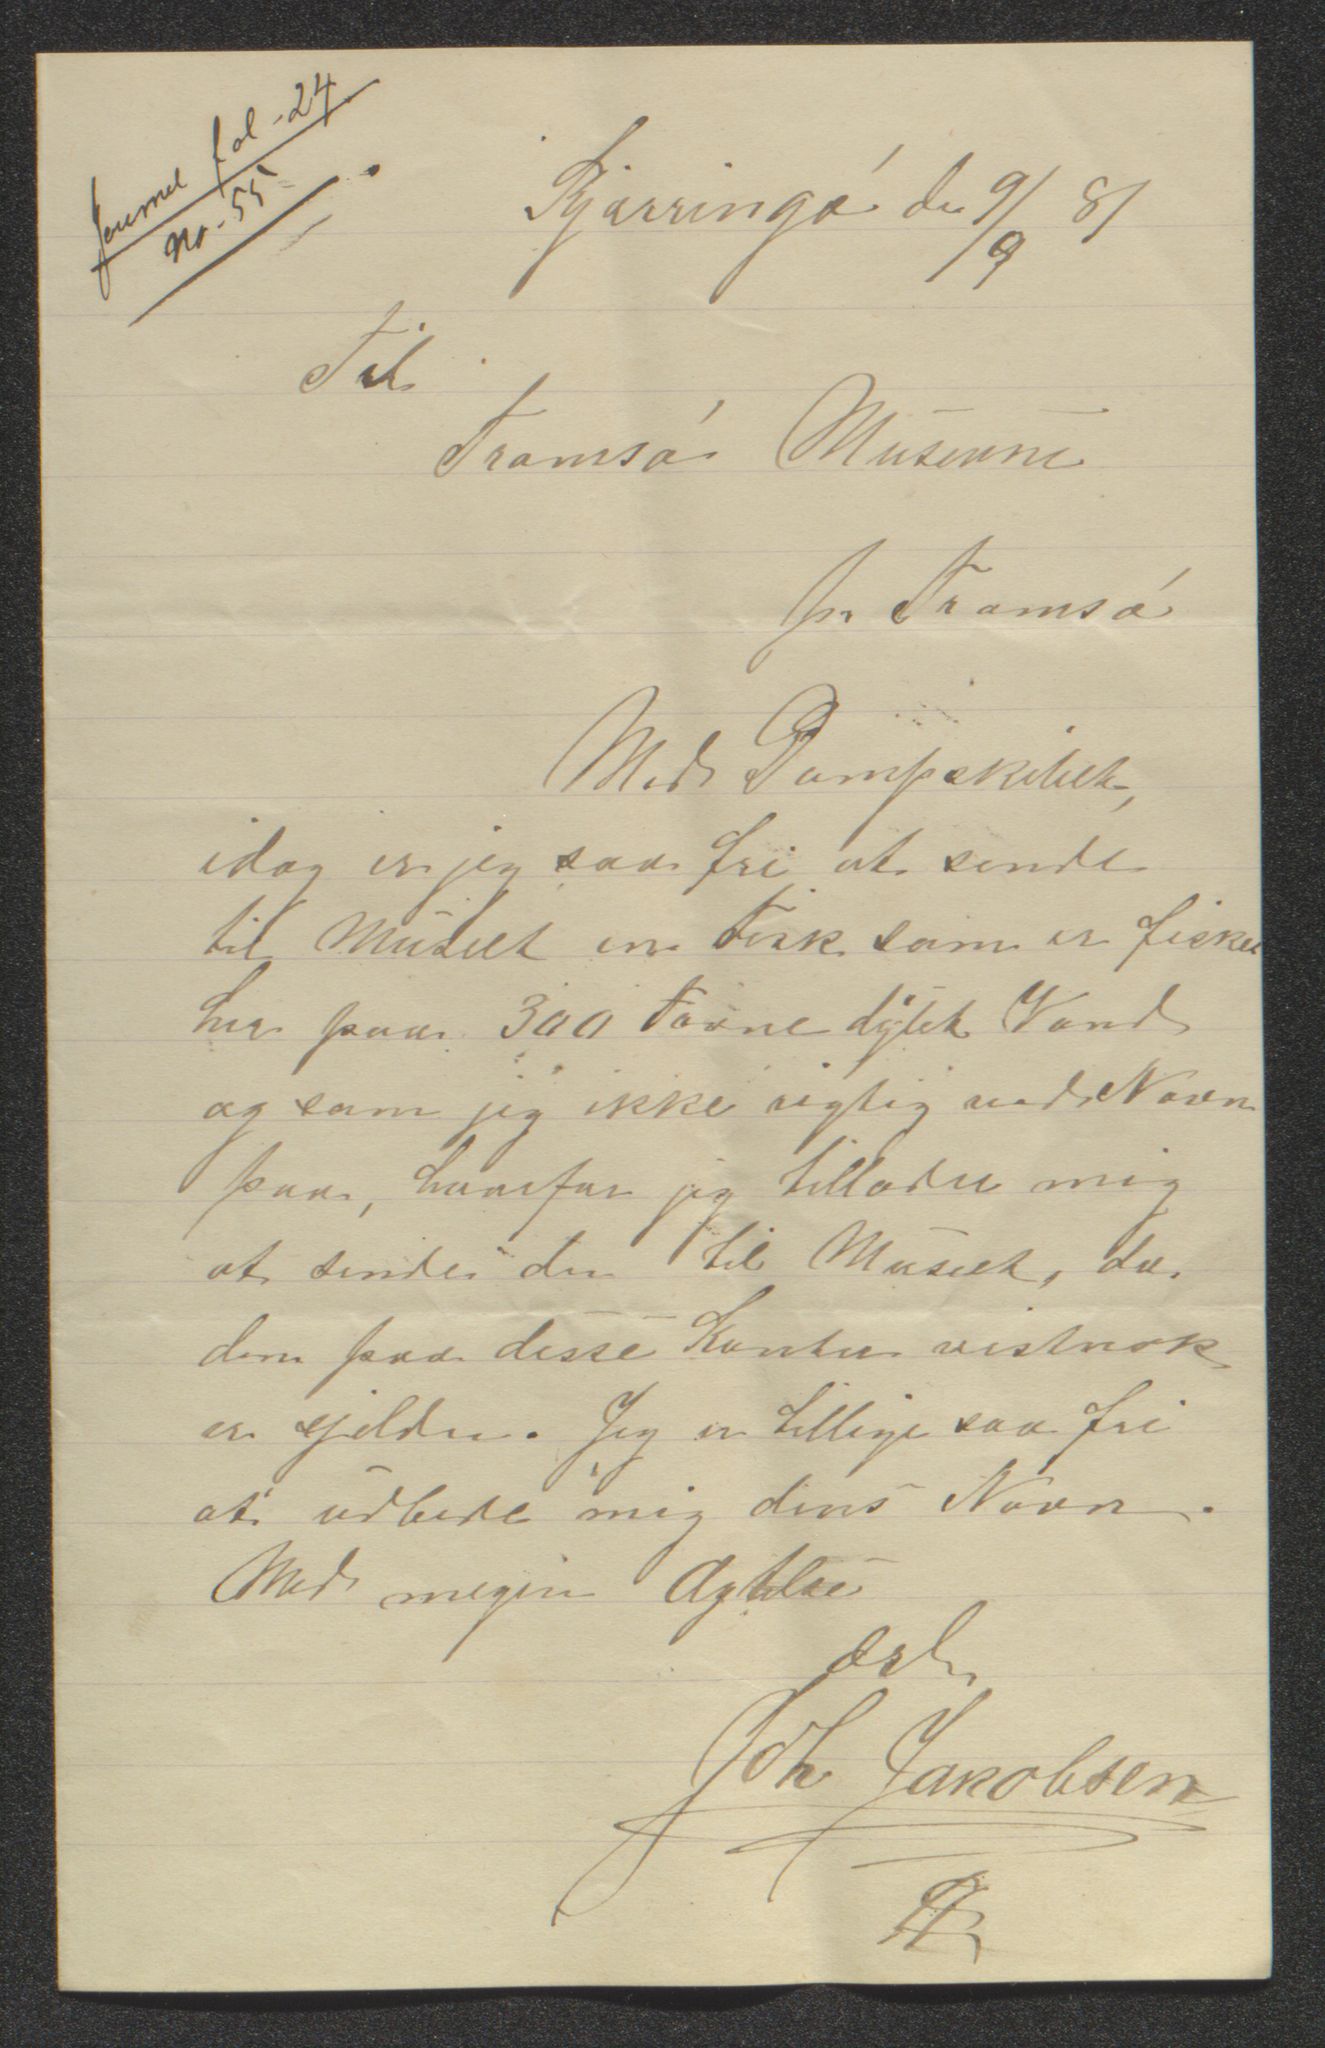 Journal fol - 24
No - 55
Bjarringö de 9/9 81
Til
Tromsö Museum
pr Tromsö
Med Dampskibet,
idag er jeg saa fri at sende
til Museet en Fisk som er fisket
her paa 300 Favne dybt Vand
og som jeg ikke rigtig ved Navn
paa, hvorfor jeg tillader mig
at sende den til Museet, da
den paa disse Kanter vistnok
er sjelden. Jeg er tillige saa fri
at udbede mig dens Navn.
Med megen Agtelse
ærb.
Joh Jakobsen